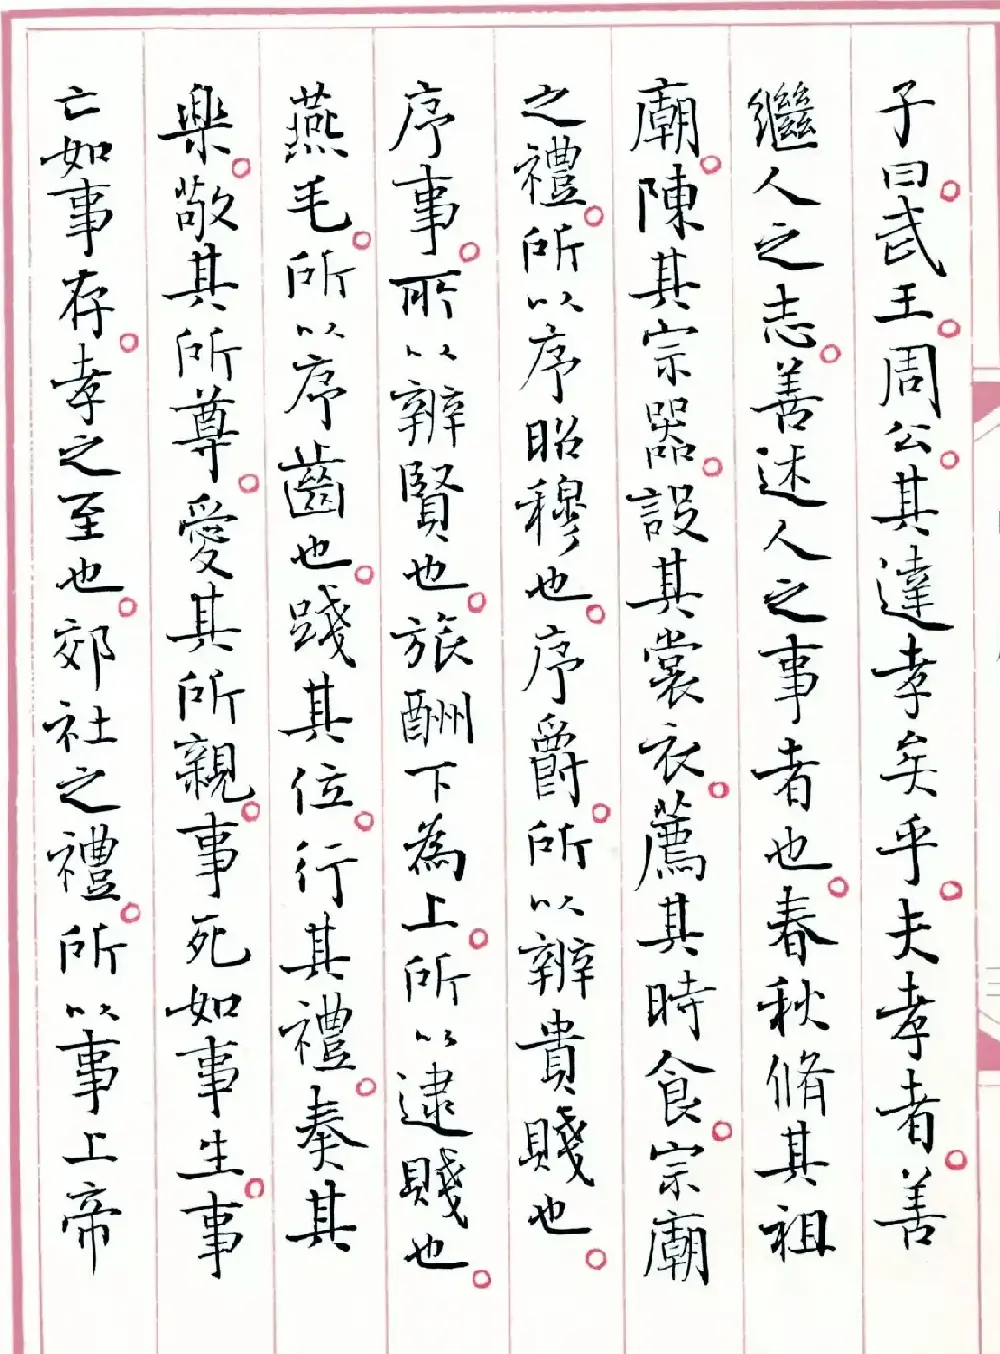 子曰。武王。周公。其達孝矣乎。夫孝者。善
繼人之志。善述人之事者也。春秋脩其祖
廟。陳其宗器。設其裳衣。薦其時食。宗廟
之禮。所以序昭穆也。序爵。所以辨貴賤也。
序事。所以辨賢也。旅酬下為上。所以逮賤也。
燕毛。所以序齒也。踐其位。行其禮。奏其
樂。敬其所尊。愛其所親。事死如事生。事
亡如事存。孝之至也。郊社之禮。所以事上帝